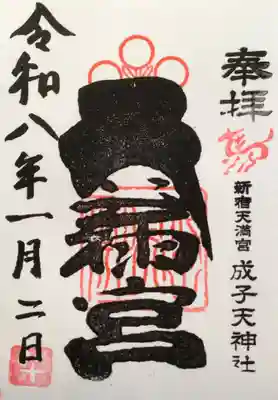 奉拝
新宿天満宮 成子天神社
宮
令和八年一月二日